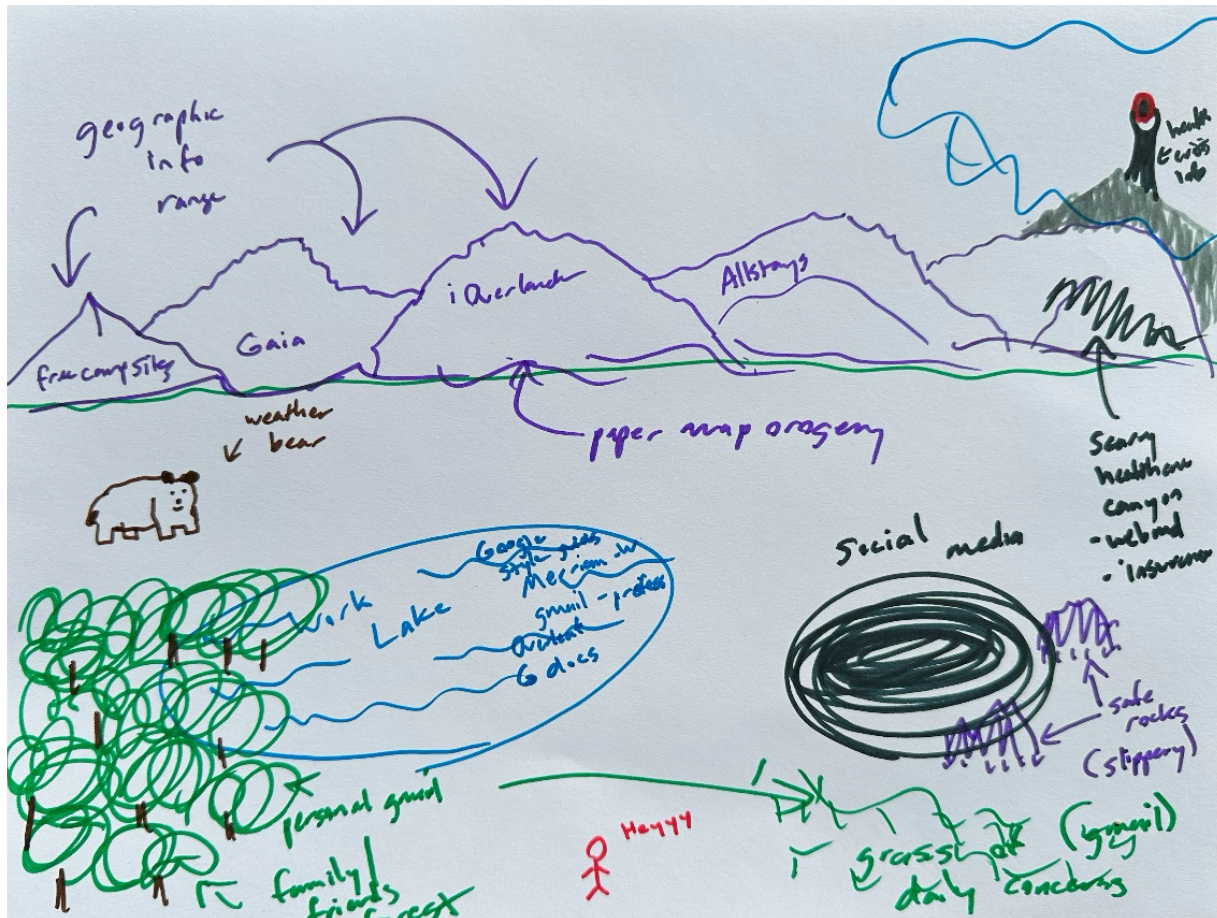 geographic
info
range
health
info
free campsites
Gaia
iOverland
Allstays
weather
bear
paper map orogeny
Scary
healthcare
canyon
- webmd
- insurance
Social media
Work
Lake
Google
Style guides
Merriam .W
gmail - profess
G docs
safe
rocks
(slippery)
personal gmail
family/
friends
forest
Heyyy
grass of (gmail)
daily concerns